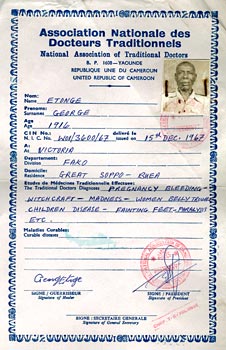 Association Nationale des
Docteurs Traditionnels
National Association of Traditional Doctors
B. P. 1608 - YAOUNDE
REPUBLIQUE UNIE DU CAMEROUN
UNITED REPUBLIC OF CAMEROON
Nom:
Name ETONGE
Prenoms:
Surname GEORGE
Age 1916
CIN No délivré le
N. I. C. No. W01/3600/67 issued on 15th DEC. 1967
A:
At VICTORIA
Departement:
Division FAKO
Residence GREAT SOPPO - BUEA
Etude de Médecines Traditionnelles Effectuee:
The Traditional Doctors Diagnoses PREGNANCY BLEEDING
WITCHCRAFT - MADNESS - WOMEN BELLY
CHILDREN DISEASE - FAINTING PARALYSIS
ETC.
Maladies Curables:
Curable diseases
SIGNE / GUERISSEUR
Signature of Healer
SIGNE / PRESIDENT
Signature of President
SIGNE / SECRETAIRE GENERALE
Signature of General Secretary